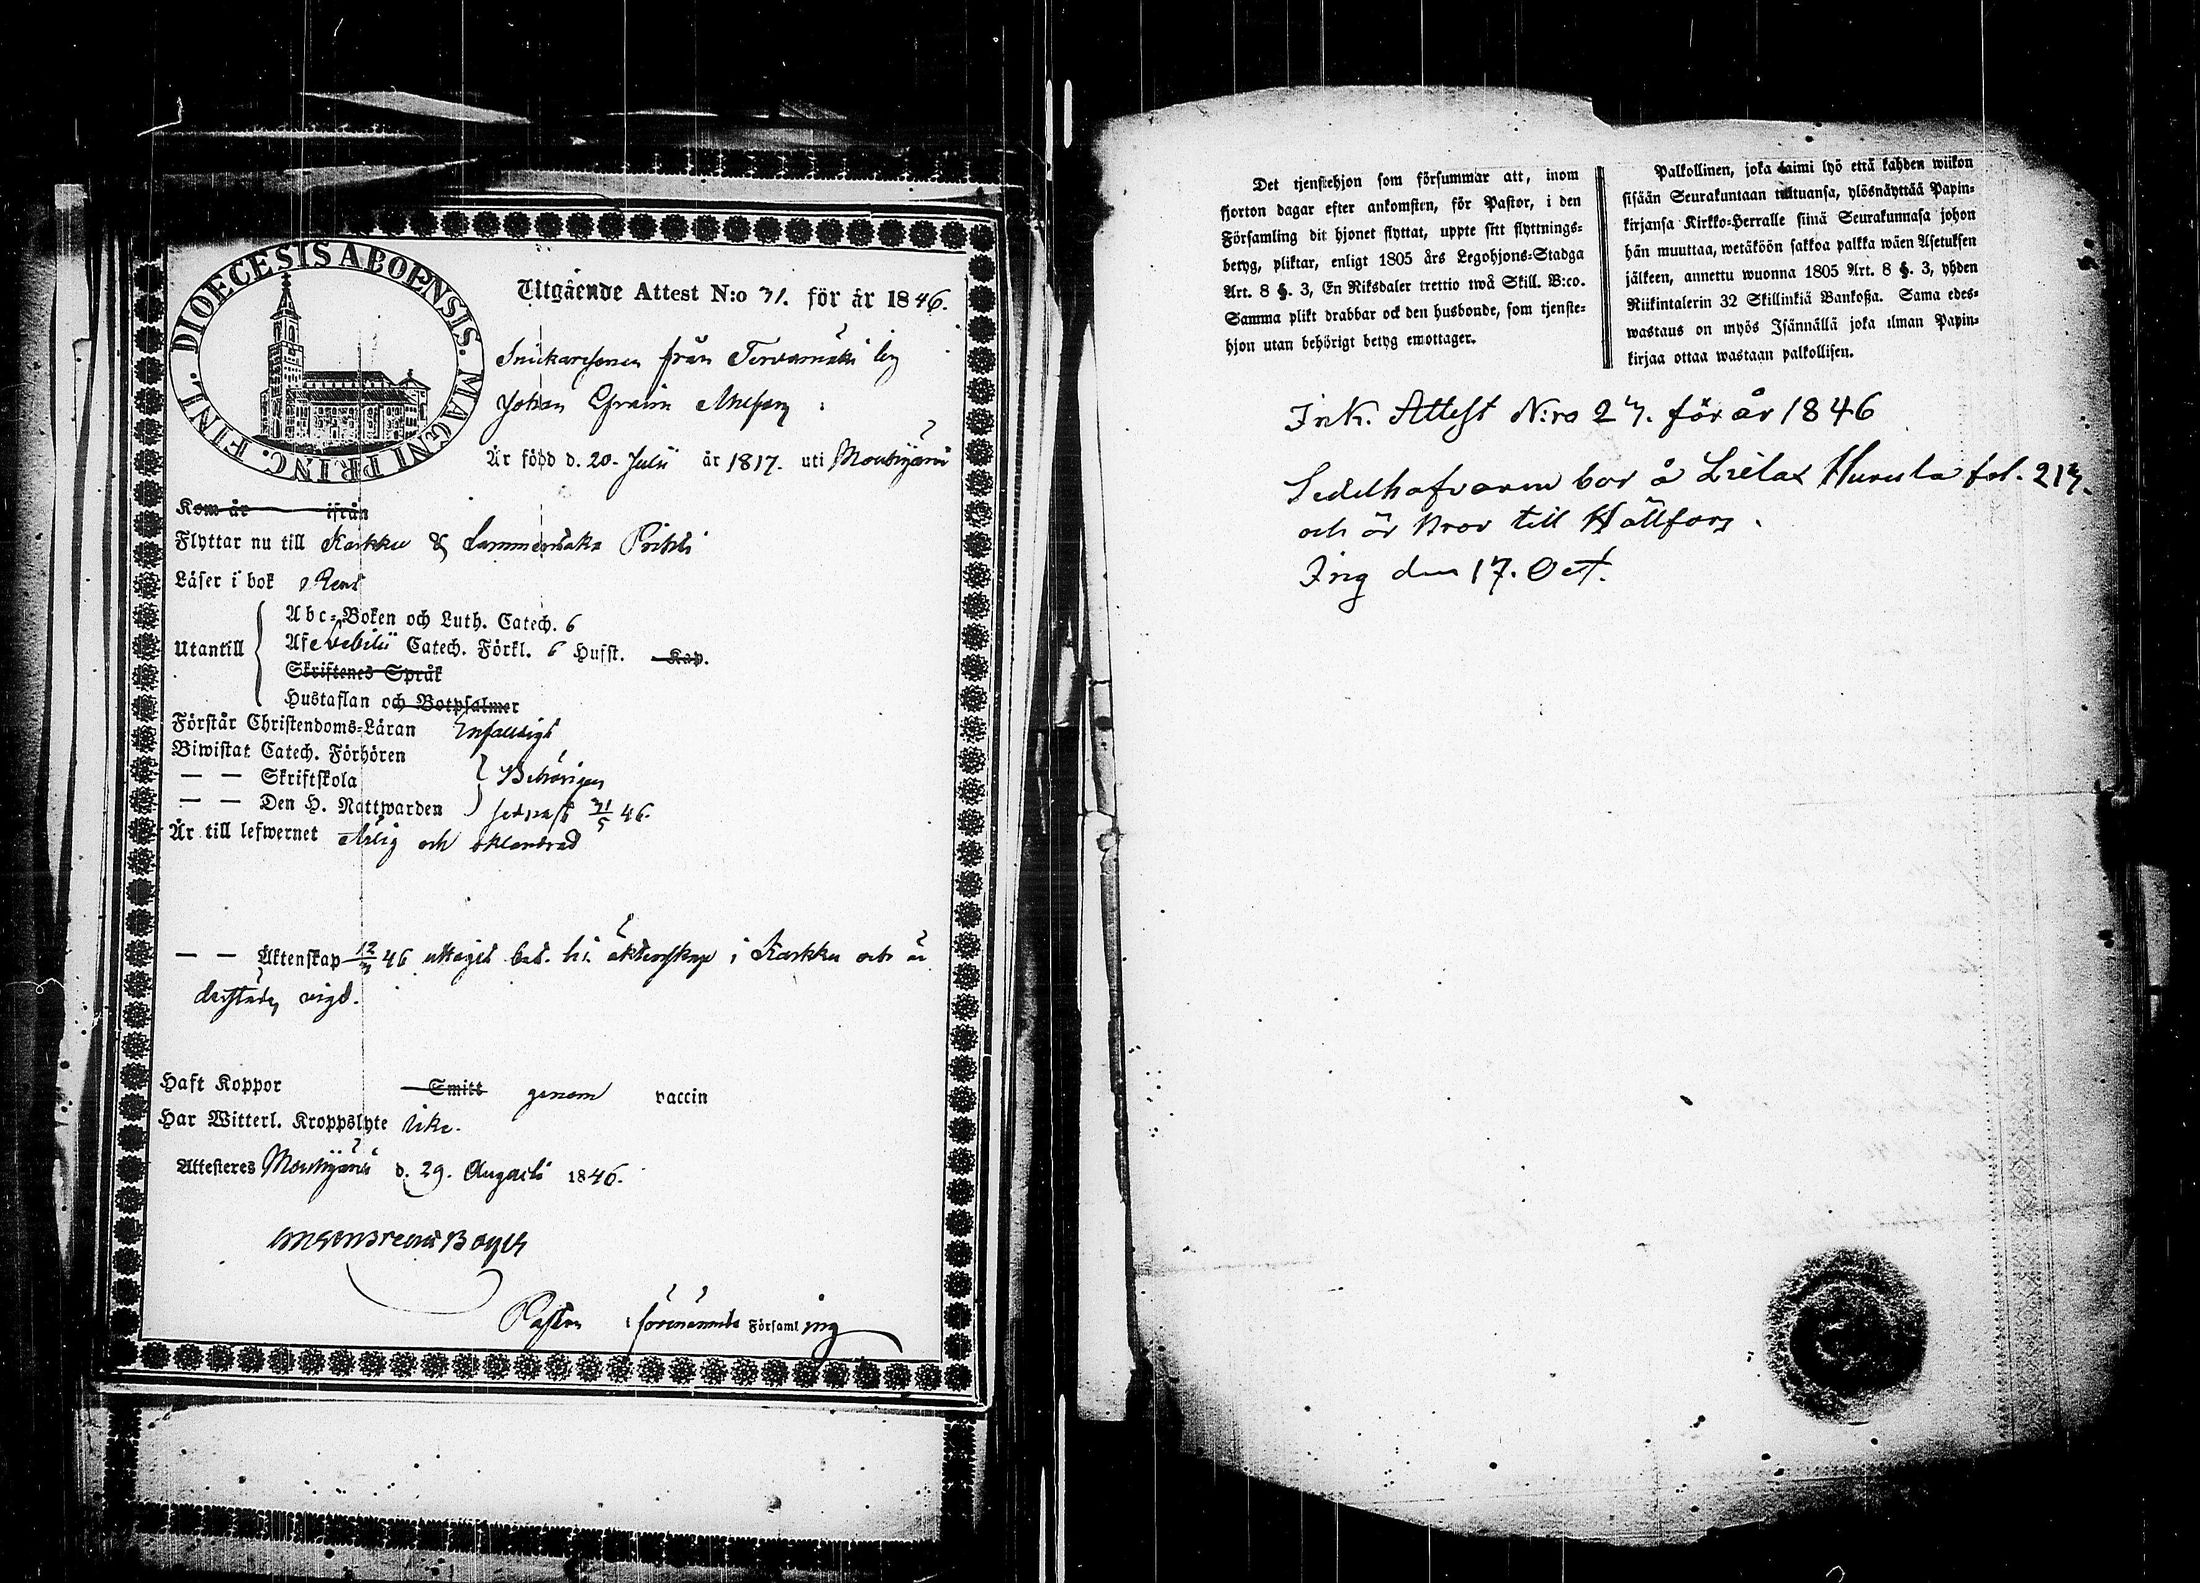 DIOECESIS ABOENSIS. MAGNI PRINC. FINL.
Utgående Attest N:o 31. för år 1846.
Snickaresonen från Tervamäki by
Johan Efraim
Är född d. 20. Julii år 1817. uti Mouhijärvi
Kom år ifrån
Flyttar nu till Karkku & Lammentaka
Läser i bok Rent
Utantill
Abc-Boken och Luth. Catech. 6
Afevebilii Catech. Förkl. 6 Hufst. Kap.
Skriftenes Språk
Hustaflan och Botpsalmer
Förstår Christendoms-Läran Enfaldigt
Biwistat Catech. Förhören
— — Skriftskola Behörigen
— — Den H. Nattwarden sednast 31/5 46.
Är till lefwernet Ärlig och oklandrad
— — Äktenskap 12/7 46 uttagit bet. til äktenskap i Karkku och är
derstädes vigd.
Haft Koppor Smitt genom vaccin
Har Witterl. Kroppslyte icke.
Attesteres Mouhijärvi d. 29. Augusti 1846.
Pastor i förenämnde Församling
Det tjenstehjon som försummar att, inom
fjorton dagar efter ankomsten, för Pastor, i den
Församling dit hjonet flyttat, uppte sitt flyttnings-
betyg, pliktar, enligt 1805 års Legohjons-Stadga
Art. 8 §. 3, En Riksdaler trettio twå Skill. B:co.
Samma plikt drabbar ock den husbonde, som tjenste-
hjon utan behörigt betyg emottager.
Palkollinen, joka laimi lyö että kahden wiikon
sisään Seurakuntaan tultuansa, ylösnäyttää Papin-
kirjansa Kirkko-Herralle siinä Seurakunnasa johon
hän muuttaa, wetäköön sakkoa palkka wäen Asetuksen
jälkeen, annettu wuonna 1805 Art. 8 §. 3, yhden
Riikintalerin 32 Skillinkiä Bankoßa. Sama edes-
wastaus on myös Isännällä joka ilman Papin-
kirjaa ottaa wastaan palkollisen.
Ink. Attest N:ro 27. för år 1846
Sedelhafvaren bor å Hurula fol. 213.
och är Bror till Hällfors.
Ing den 17. Oct.